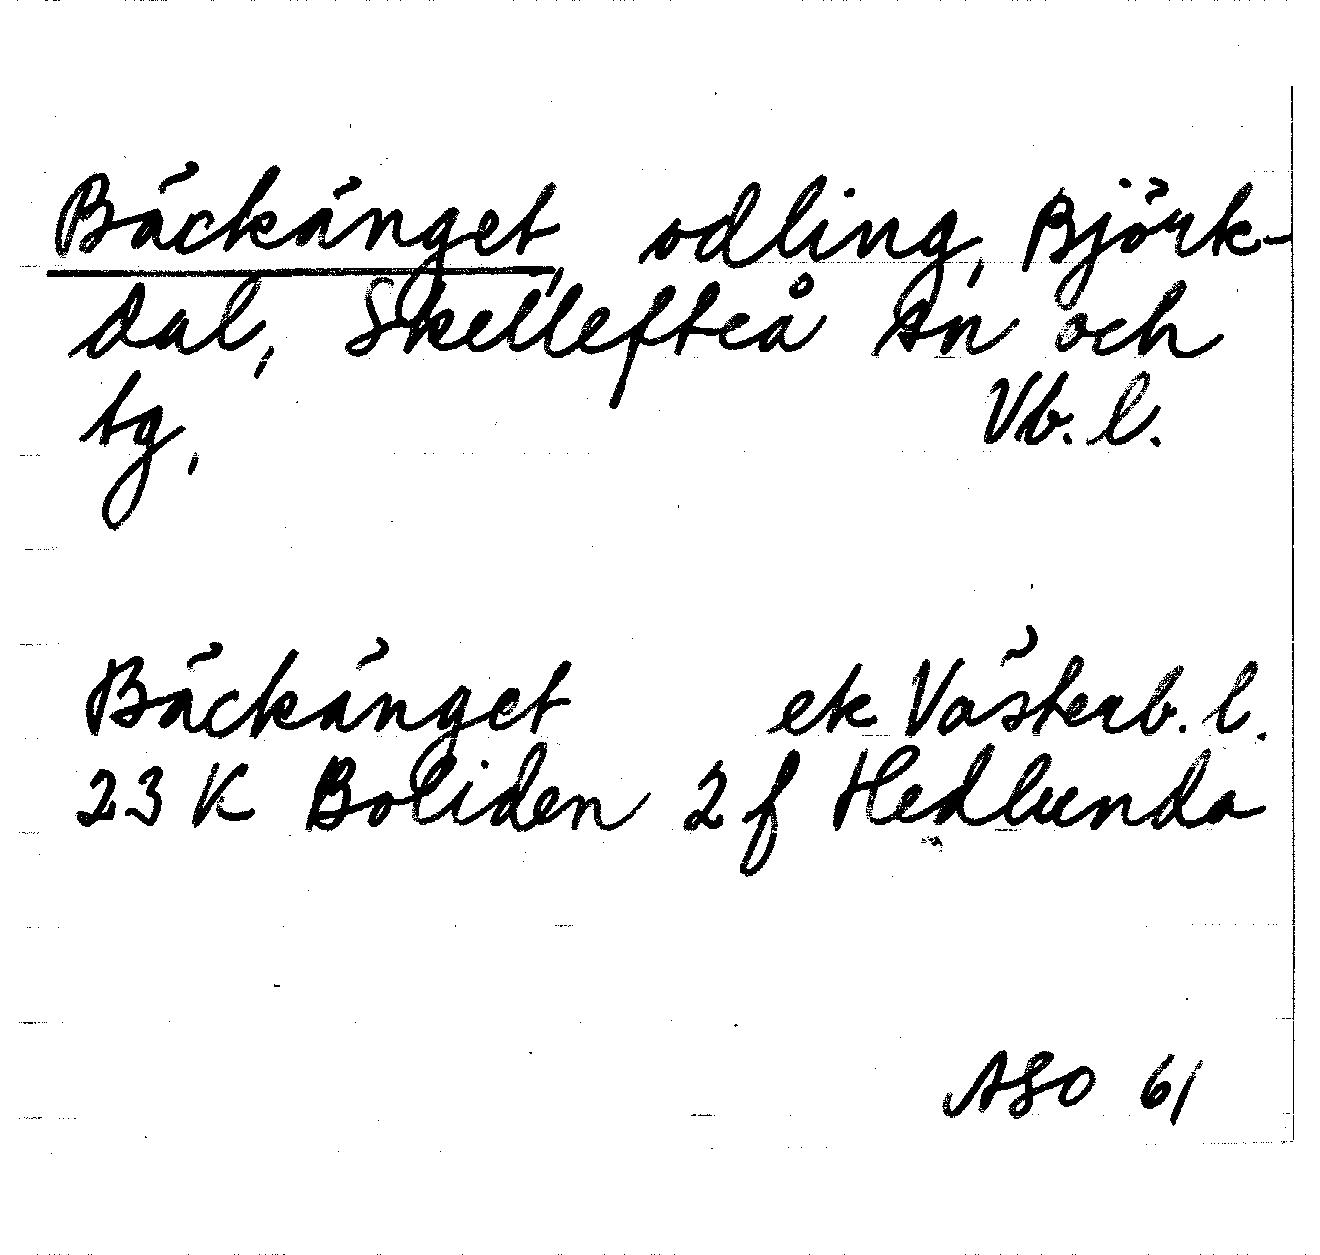 Bäckänget, odling, Björk-
dal, Skellefteå sn och
tg, Vb. l.
Bäckänget ek Västerb. l.
23 K Boliden 2 f Hedlunda
ASO 61